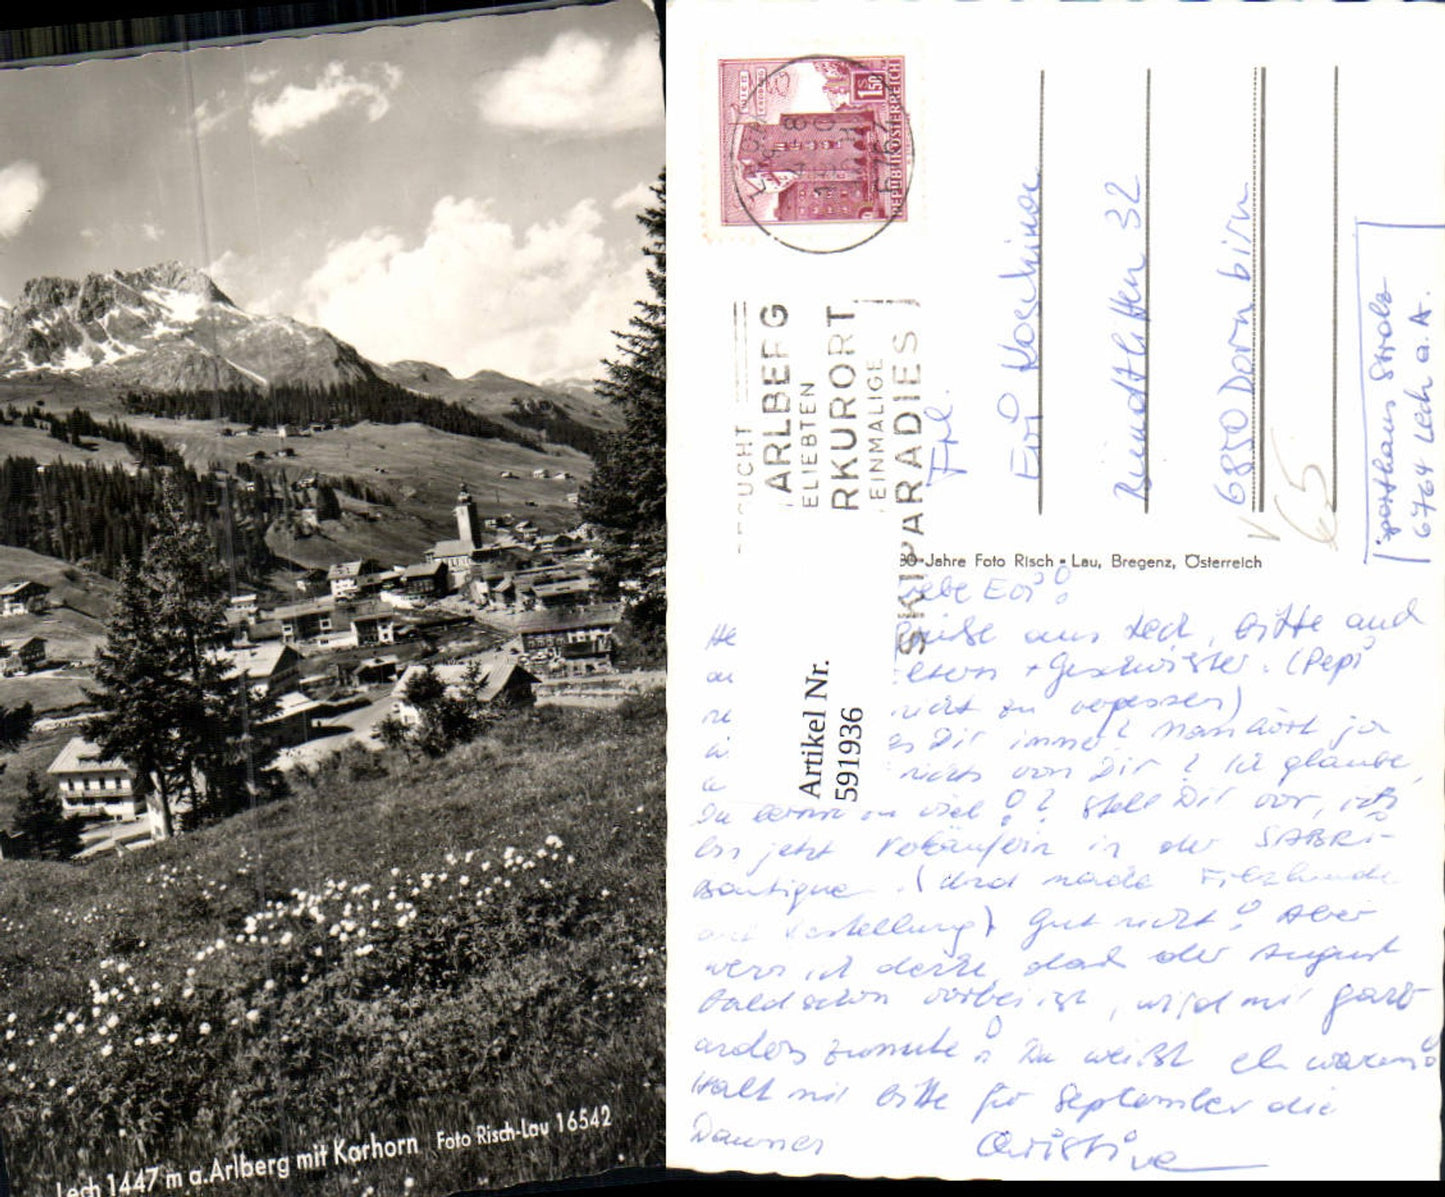 Lech 1447 m a. Arlberg mit Karhorn Foto Risch-Lau 16542
WIEN
ERDBERG
S 1.50
REPUBLIK ÖSTERREICH
6764
ARLBERG
ELIEBTEN
RKURORT
EINMALIGE
SKIPARADIES
Frl.
Evi
32
6850 Dornbirn
65
Sporthaus Strolz
6764 Lech a. A.
Jahre Foto Risch-Lau, Bregenz, Österreich
Artikel Nr.
591936
iebe Evi!
aus Lech, bitte auch
eltern + Geschwister. (Pepi
nicht zu vergessen)
es Dir immer? Man hört ja
nichts von Dir? Ich glaube,
Du viel!? Stell Dir vor, ich
bin jetzt Verkäuferin in der SABRI-
Boutique. (Und
Vorstellung) Gut nicht! Aber
wenn ich denke, daß der August
bald schon vorbei ist, wird mir ganz
anders zumute! Du weißt eh warum!
Halt mir bitte für September die
Daumen
Christine